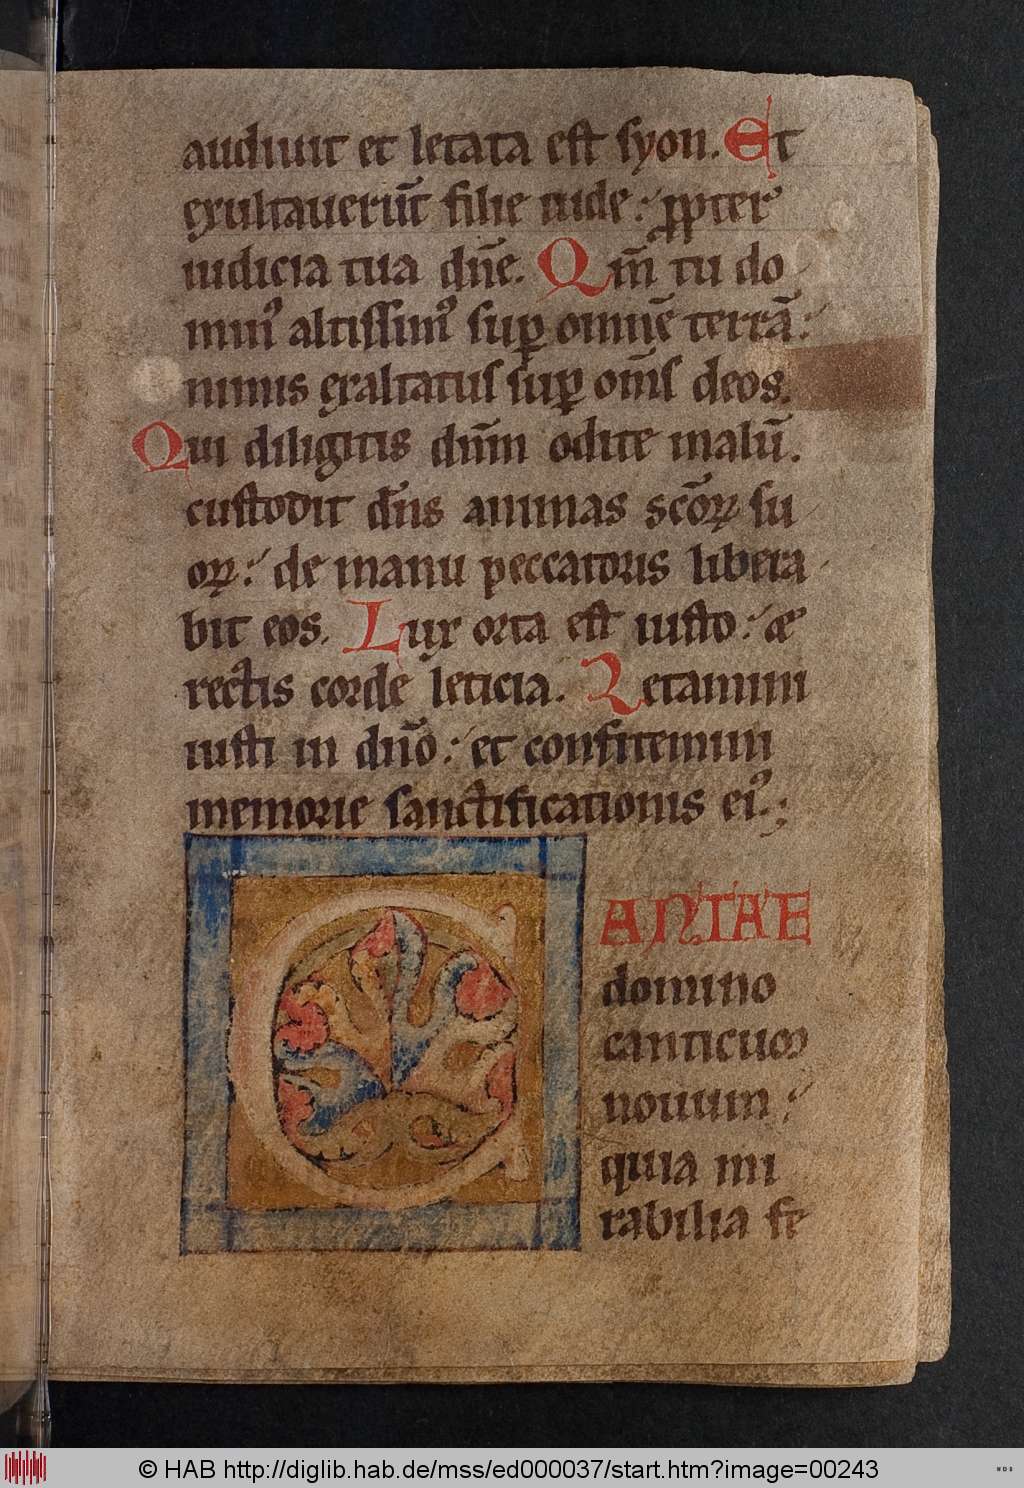 audiuit et letata est syon. Et
exultauerūt filie iude: ꝓpter
iudicia tua dn̄e. Qm̄ tu do
minꝰ altissimꝰ suꝑ omnē terrā:
nimis exaltatus suꝑ om̄s deos.
Qui diligitis dn̄m odite malū.
custodit dn̄s animas sc̄oꝝ su
oꝝ: de manu peccatoris libera
bit eos. Lux orta est iusto: æ
rectis corde leticia. Letamini
iusti in dn̄o: et confitemini
memorie sanctificationis eiꝰ;
CANTATE
domino
canticum
nouum:
quia mi
rabilia fe
© HAB http://diglib.hab.de/mss/ed000037/start.htm?image=00243